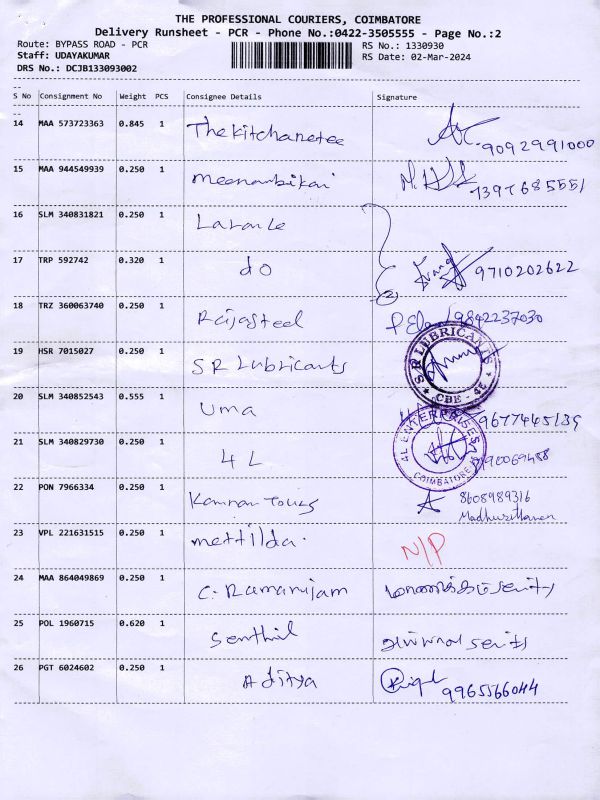 THE PROFESSIONAL COURIERS, COIMBATORE
Delivery Runsheet - PCR - Phone No.:0422-3505555 - Page No.:2
Route: BYPASS ROAD - PCR
RS No.: 1330930
Staff: UDAYAKUMAR
RS Date: 02-Mar-2024
DRS No.: DCJB133093002
--
S No Consignment No Weight PCS Consignee Details Signature
--
14 MAA 573723363 0.845 1 Thekitchanetee 9092991000
15 MAA 944549939 0.250 1 meenambikai 7397685551
16 SLM 340831821 0.250 1
17 TRP 592742 0.320 1 do 9710202622
(2)
18 TRZ 360063740 0.250 1 Rajasteel 9842237030
19 HSR 7015027 0.250 1 SR Lubricants
S R LUBRICANTS
* CBE - 45 *
20 SLM 340852543 0.555 1 Uma 9677445139
21 SLM 340829730 0.250 1 4L
4L ENTERPRISES
COIMBATORE
22 PON 7966334 0.250 1 Kannan Tours 8608989316
23 VPL 221631515 0.250 1 mettilda. N/P
24 MAA 864049869 0.250 1 C. Ramanijam
25 POL 1960715 0.620 1 Senthil
26 PGT 6024602 0.250 1 Aditya 9965566044